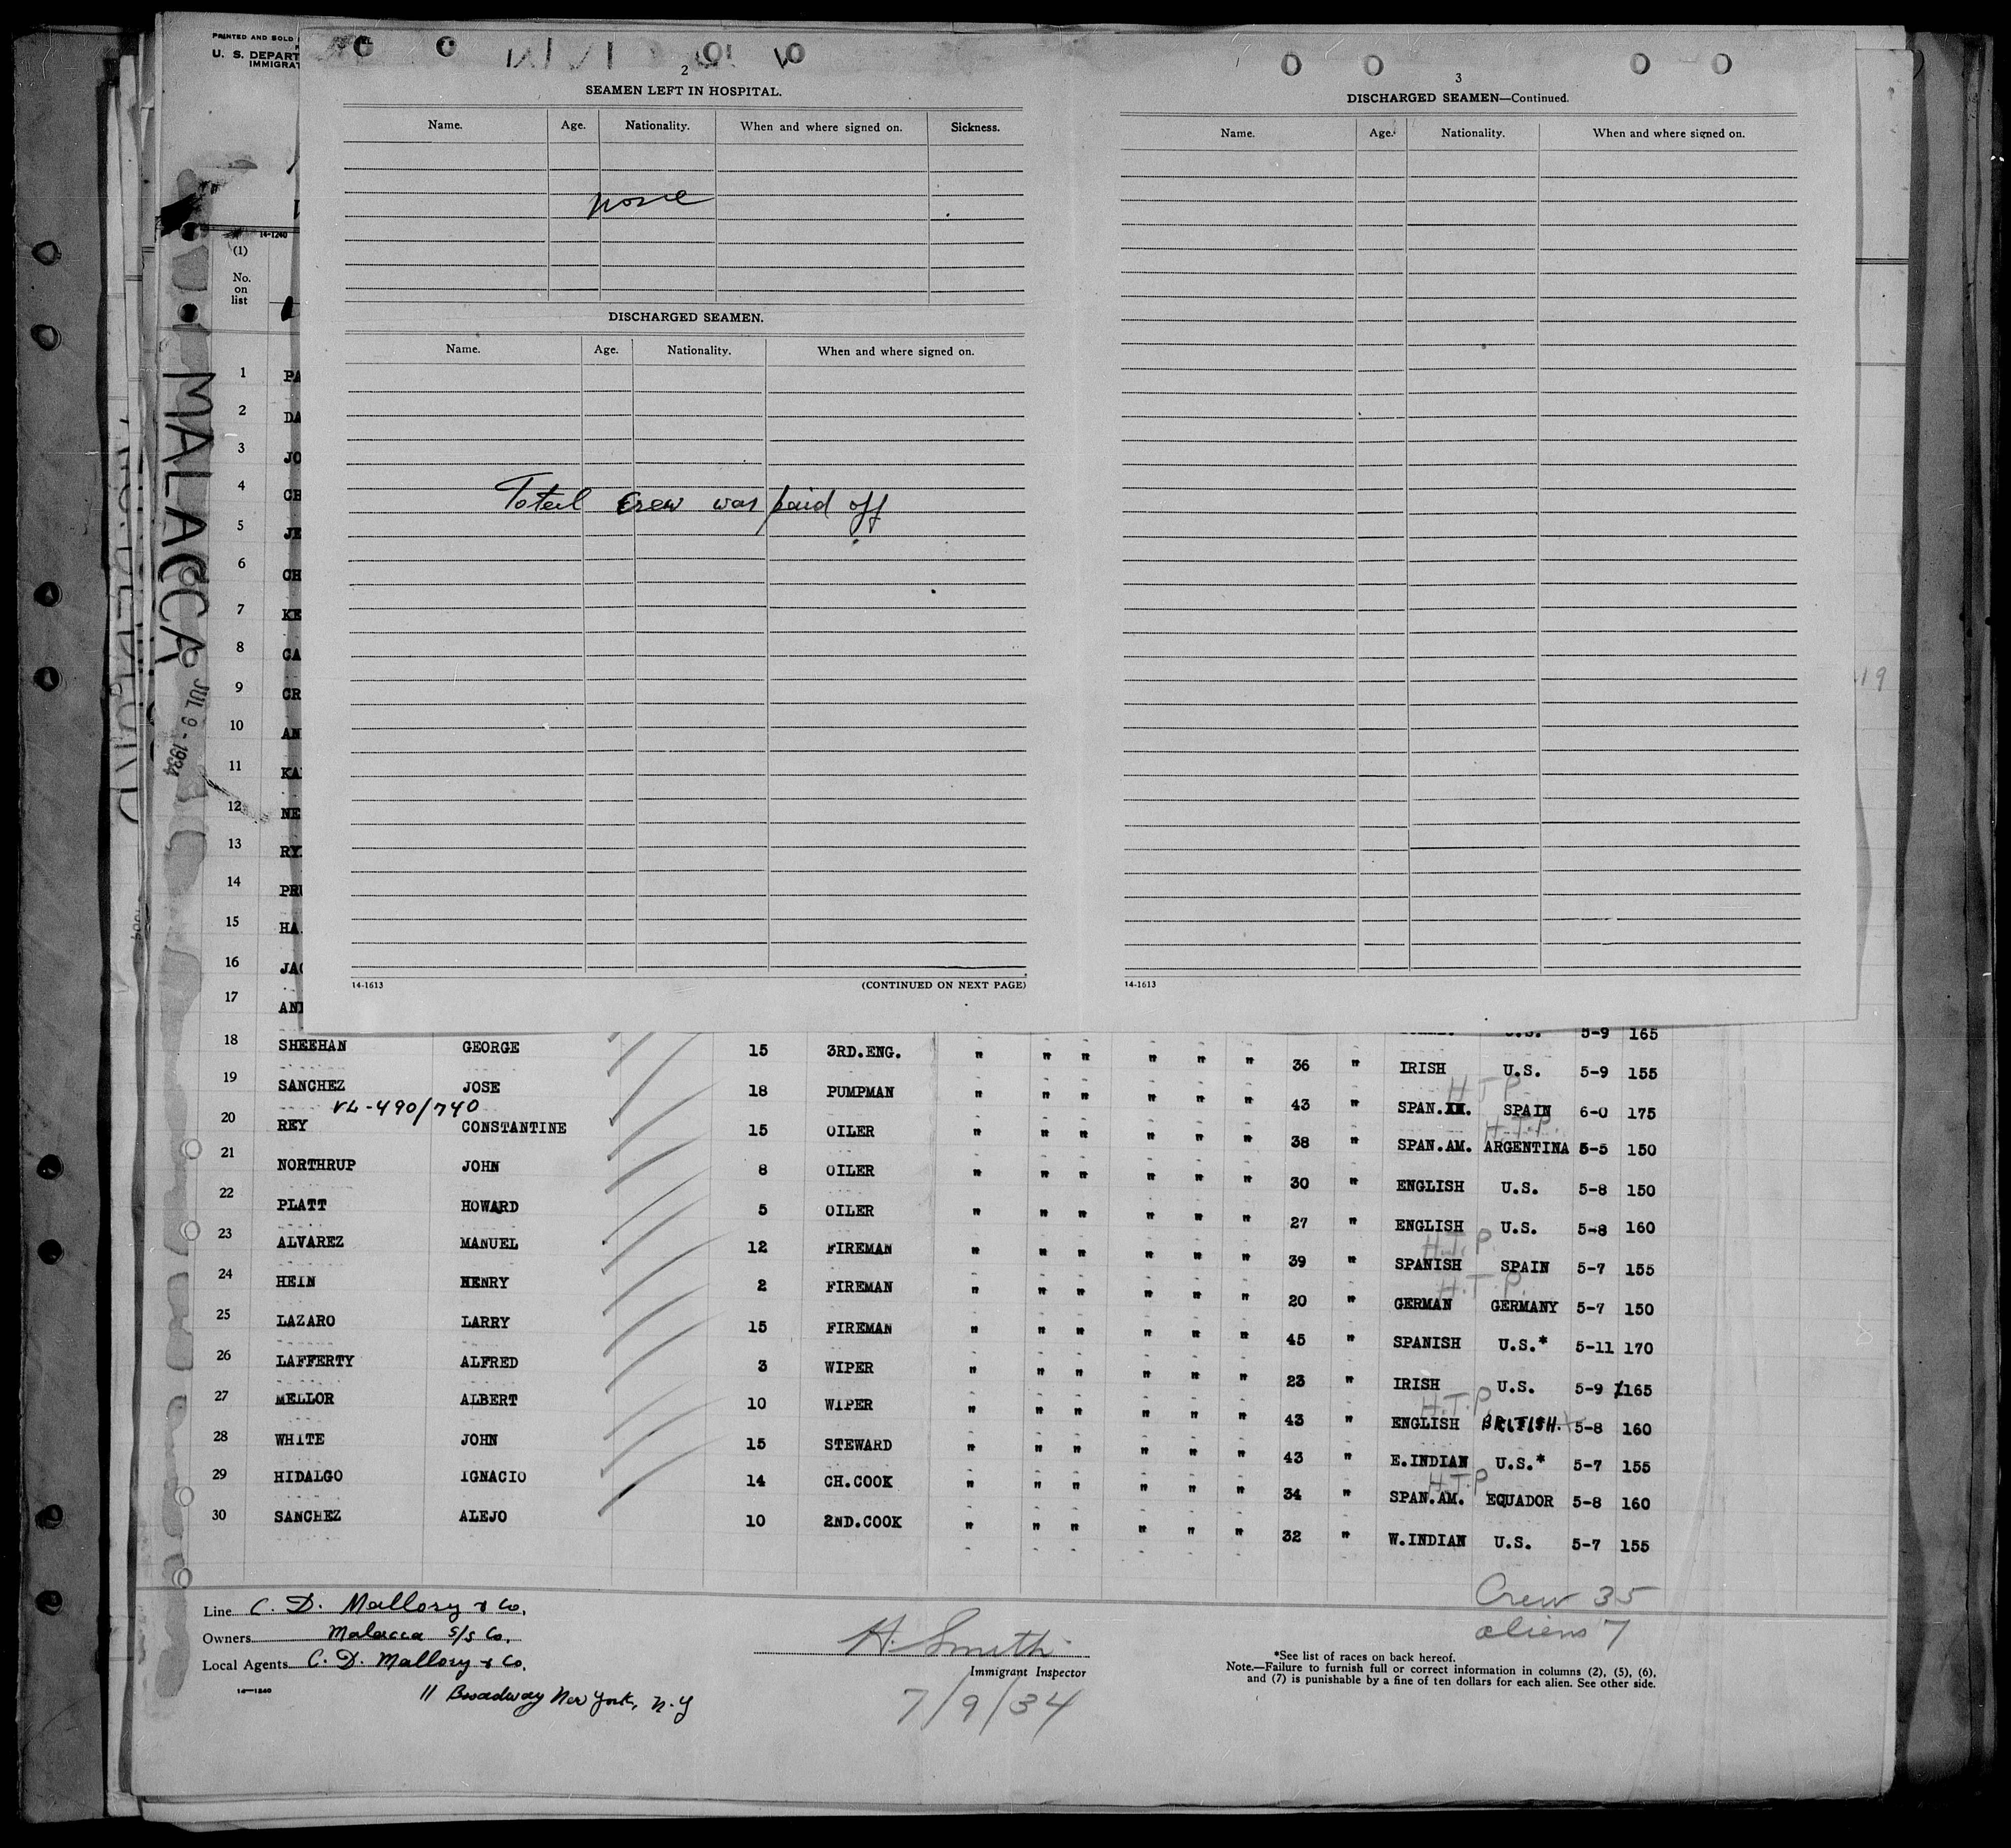 PRINTED AND SOLD
U. S. DEPART
IMMIGRAT
14-1240
(1)
No.
on
list
MALACCA
JUL 9 - 1934
2
SEAMEN LEFT IN HOSPITAL.
Name. Age. Nationality. When and where signed on. Sickness.
none
DISCHARGED SEAMEN.
Name. Age. Nationality. When and where signed on.
Total crew was paid off
14-1613 (CONTINUED ON NEXT PAGE)
3
DISCHARGED SEAMEN—Continued.
Name. Age. Nationality. When and where signed on.
14-1613
19
1 PA
2 DA
3 JO
4 CH
5 JE
6 CH
7 KE
8 CA
9 CR
10 AN
11 KA
12 NE
13 RY
14 PRU
15 HA
16 JAC
17 AN
U.S. 5-9 165
18 SHEEHAN GEORGE 15 3RD.ENG. " " " " " " 36 " IRISH U.S. 5-9 155
H.T.P.
19 SANCHEZ JOSE 18 PUMPMAN " " " " " " 43 " SPAN. SPAIN 6-0 175
VL-490/740 H.T.P.
20 REY CONSTANTINE 15 OILER " " " " " " 38 " SPAN.AM. ARGENTINA 5-5 150
21 NORTHRUP JOHN 8 OILER " " " " " " 30 " ENGLISH U.S. 5-8 150
22 PLATT HOWARD 5 OILER " " " " " " 27 " ENGLISH U.S. 5-8 160
H.T.P.
23 ALVAREZ MANUEL 12 FIREMAN " " " " " " 39 " SPANISH SPAIN 5-7 155
H.T.P.
24 HEIN HENRY 2 FIREMAN " " " " " " 20 " GERMAN GERMANY 5-7 150
25 LAZARO LARRY 15 FIREMAN " " " " " " 45 " SPANISH U.S.* 5-11 170
26 LAFFERTY ALFRED 3 WIPER " " " " " " 23 " IRISH U.S. 5-9 165
H.T.P.
27 MELLOR ALBERT 10 WIPER " " " " " " 43 " ENGLISH BRITISH. 5-8 160
28 WHITE JOHN 15 STEWARD " " " " " " 43 " E.INDIAN U.S.* 5-7 155
H.T.P.
29 HIDALGO IGNACIO 14 CH.COOK " " " " " " 34 " SPAN.AM. EQUADOR 5-8 160
30 SANCHEZ ALEJO 10 2ND.COOK " " " " " " 32 " W.INDIAN U.S. 5-7 155
Crew 35
aliens 7
Line C. D. Mallory & Co.
Owners Malacca S/S Co.
Local Agents C. D. Mallory & Co.
14-1240
11 Broadway New York, N.Y
H. Smith
Immigrant Inspector
7/9/34
*See list of races on back hereof.
Note.—Failure to furnish full or correct information in columns (2), (5), (6),
and (7) is punishable by a fine of ten dollars for each alien. See other side.